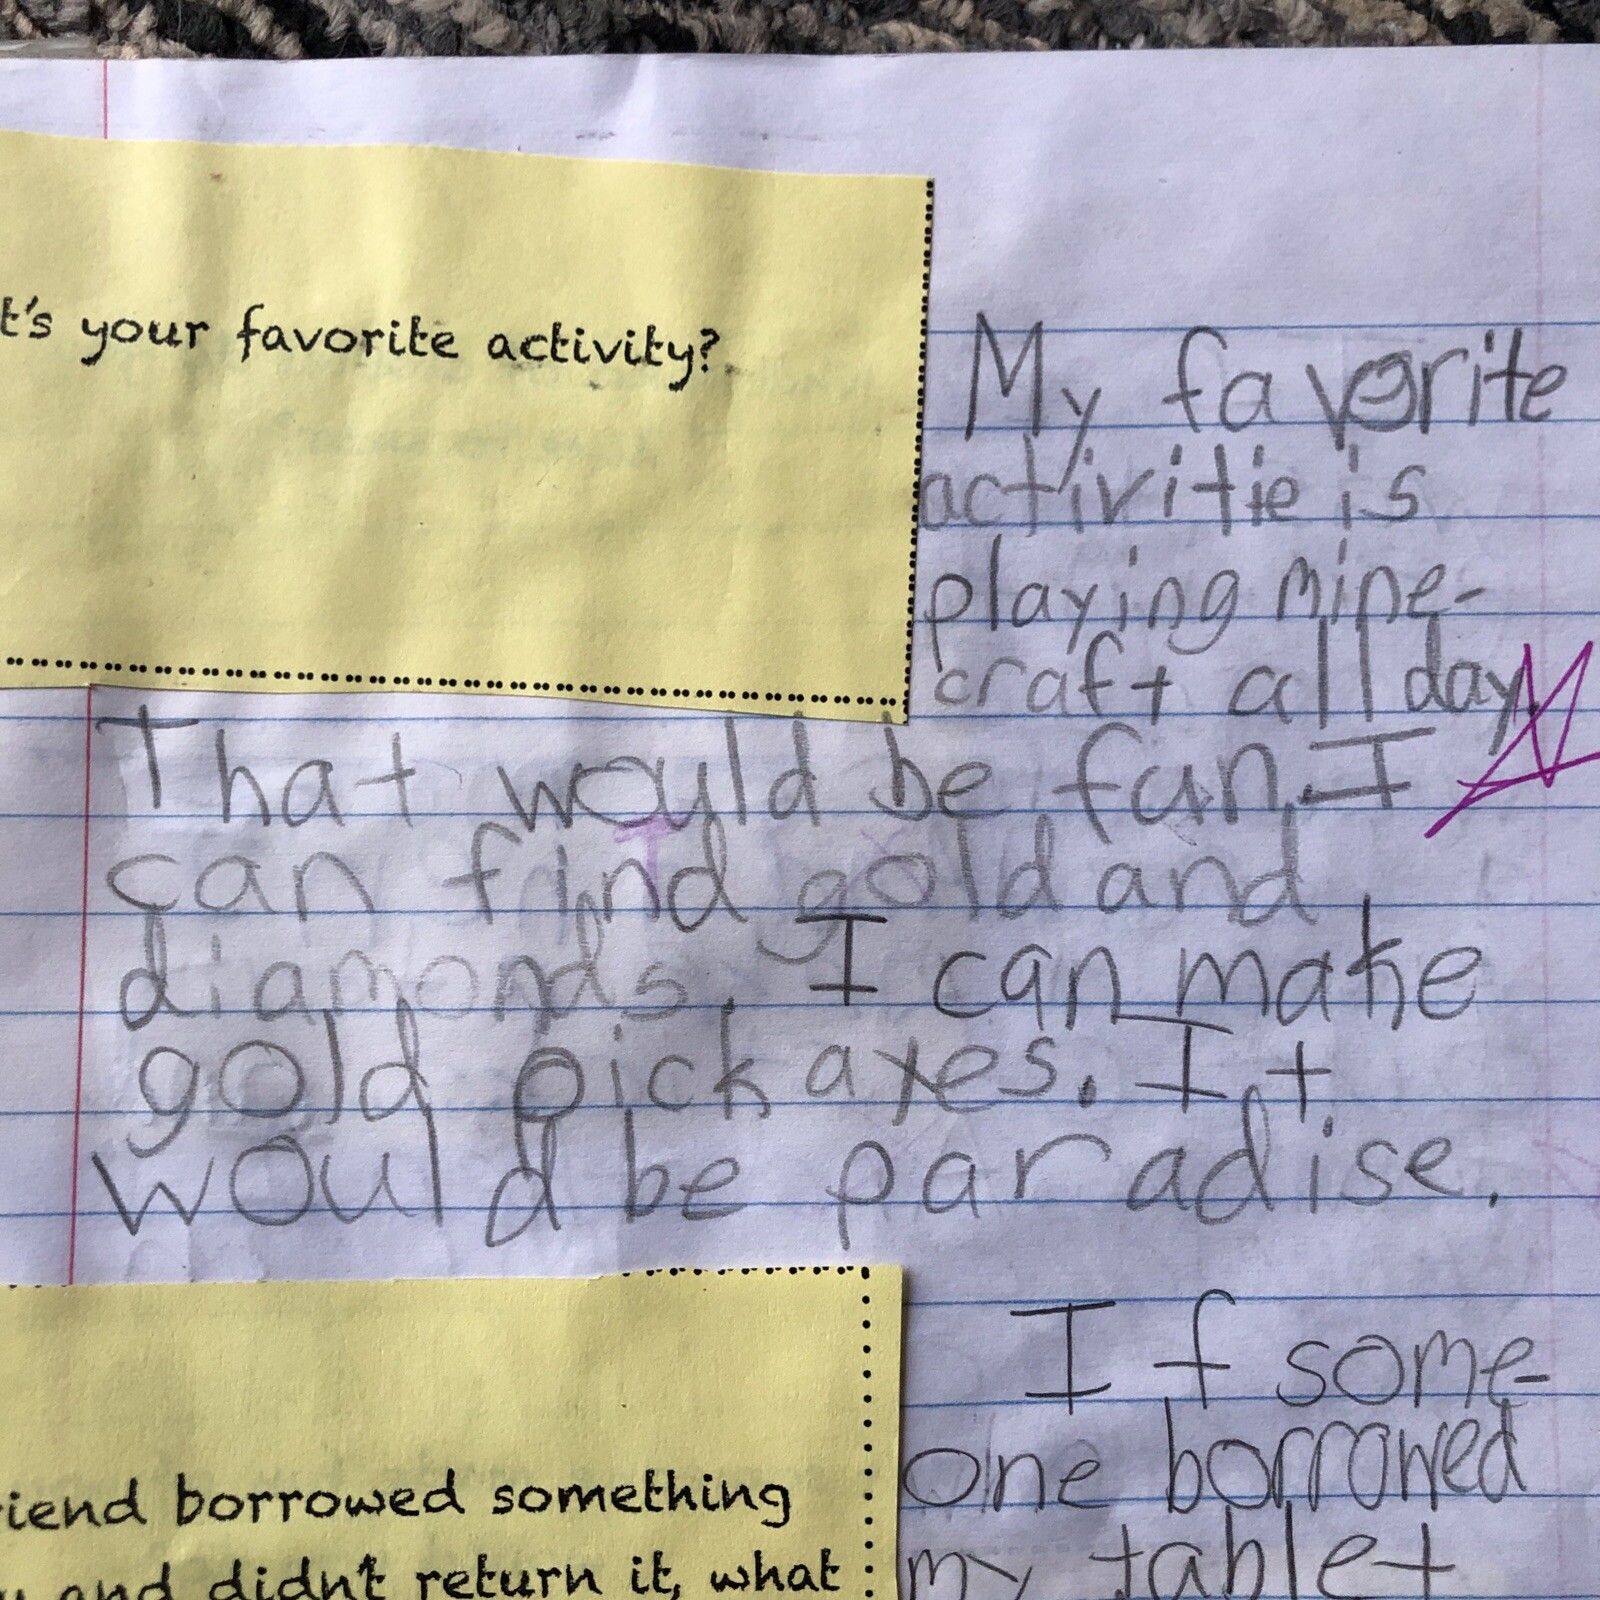 t's your favorite activity?
My favorite
activitie is
playing mine-
craft all day.
That would be fun. I
can find gold and
diamonds. I can make
gold pick axes. It
would be paradise.
iend borrowed something
and didn't return it, what
If some-
one borrowed
my tablet